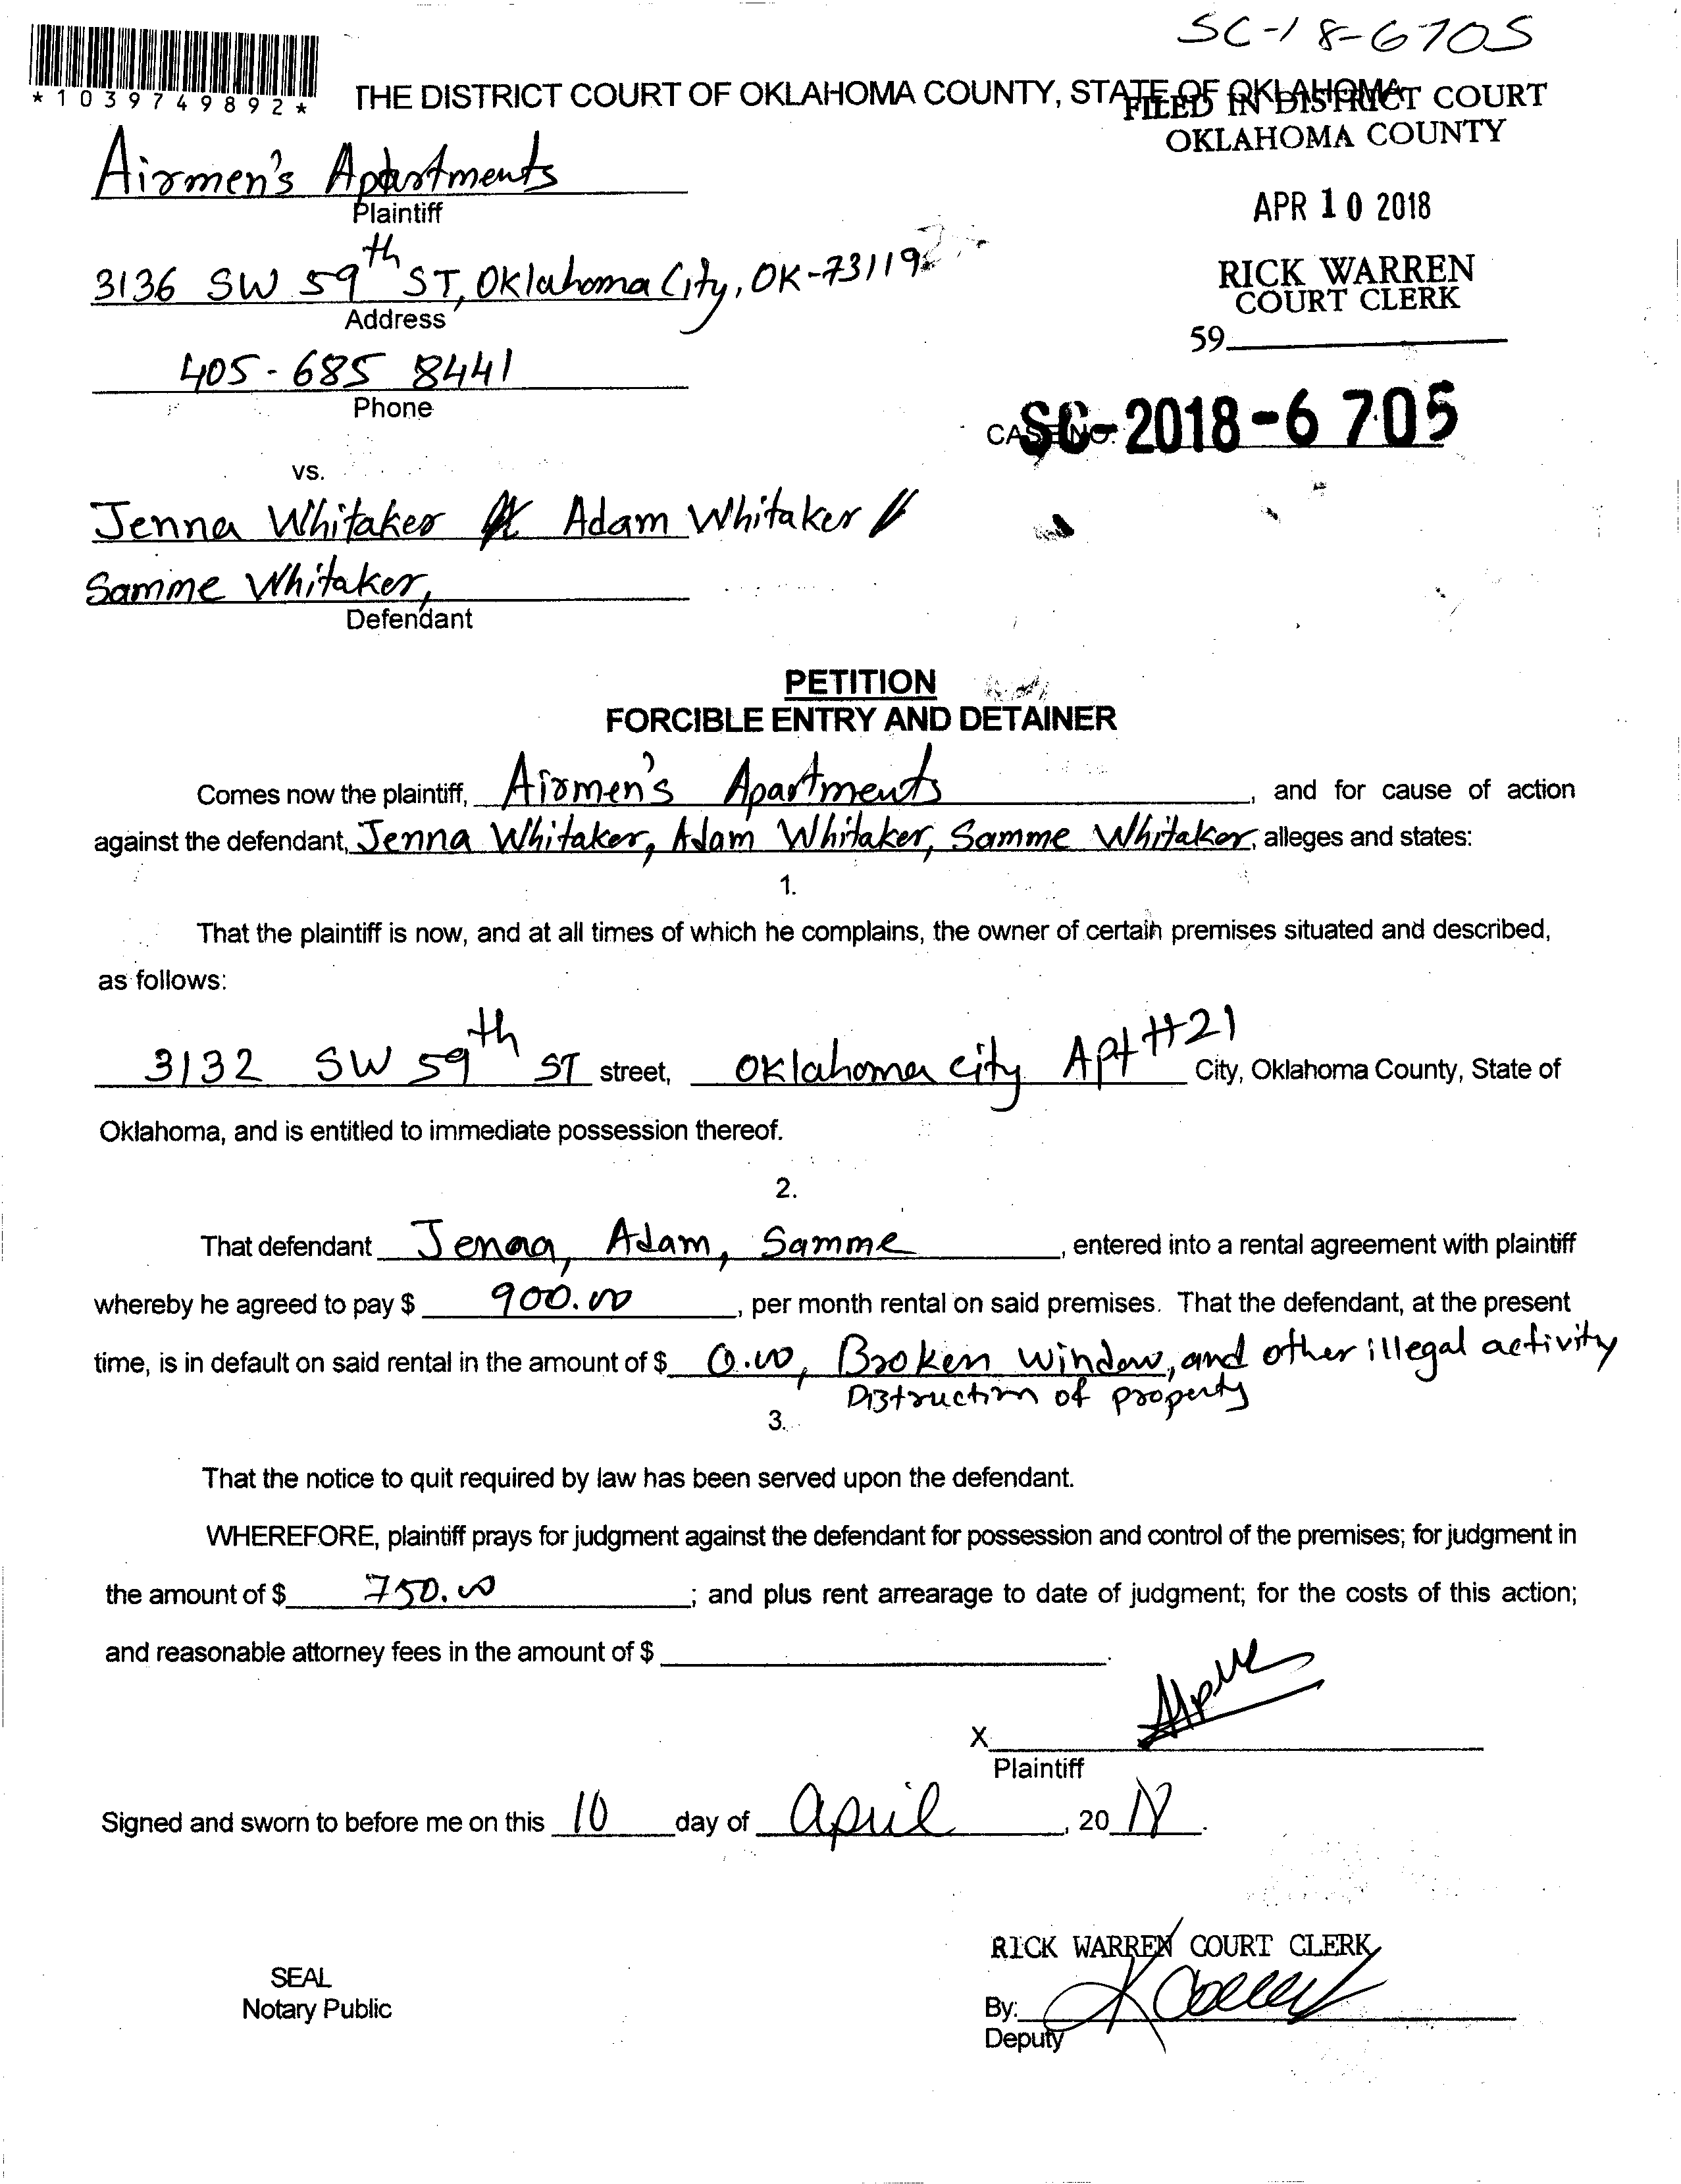 SC-18-6705
*1039749892*
THE DISTRICT COURT OF OKLAHOMA COUNTY, STATE OF OKLAHOMA
FILED IN DISTRICT COURT
OKLAHOMA COUNTY
Airmen's Apartments
Plaintiff
APR 10 2018
3136 SW 59th ST, Oklahoma City, OK-73119
Address
RICK WARREN
COURT CLERK
59
405-685 8441
Phone
CASE NO. SC-2018-6705
vs.
Jenna Whitaker Adam Whitaker
Samme Whitaker,
Defendant
PETITION
FORCIBLE ENTRY AND DETAINER
Comes now the plaintiff, Airmen's Apartments, and for cause of action
against the defendant, Jenna Whitaker, Adam Whitaker, Samme Whitaker, alleges and states:
1.
That the plaintiff is now, and at all times of which he complains, the owner of certain premises situated and described,
as follows:
3132 SW 59th ST street, Oklahoma city Apt #21 City, Oklahoma County, State of
Oklahoma, and is entitled to immediate possession thereof.
2.
That defendant Jenna, Adam, Samme, entered into a rental agreement with plaintiff
whereby he agreed to pay $ 900.00, per month rental on said premises. That the defendant, at the present
time, is in default on said rental in the amount of $ 0.00, Broken window, and other illegal activity
Distruction of property
3.
That the notice to quit required by law has been served upon the defendant.
WHEREFORE, plaintiff prays for judgment against the defendant for possession and control of the premises; for judgment in
the amount of $ 750.00; and plus rent arrearage to date of judgment; for the costs of this action;
and reasonable attorney fees in the amount of $ .
X
Plaintiff
Signed and sworn to before me on this 10 day of April, 2018.
RICK WARREN COURT CLERK
SEAL
Notary Public
By:
Deputy